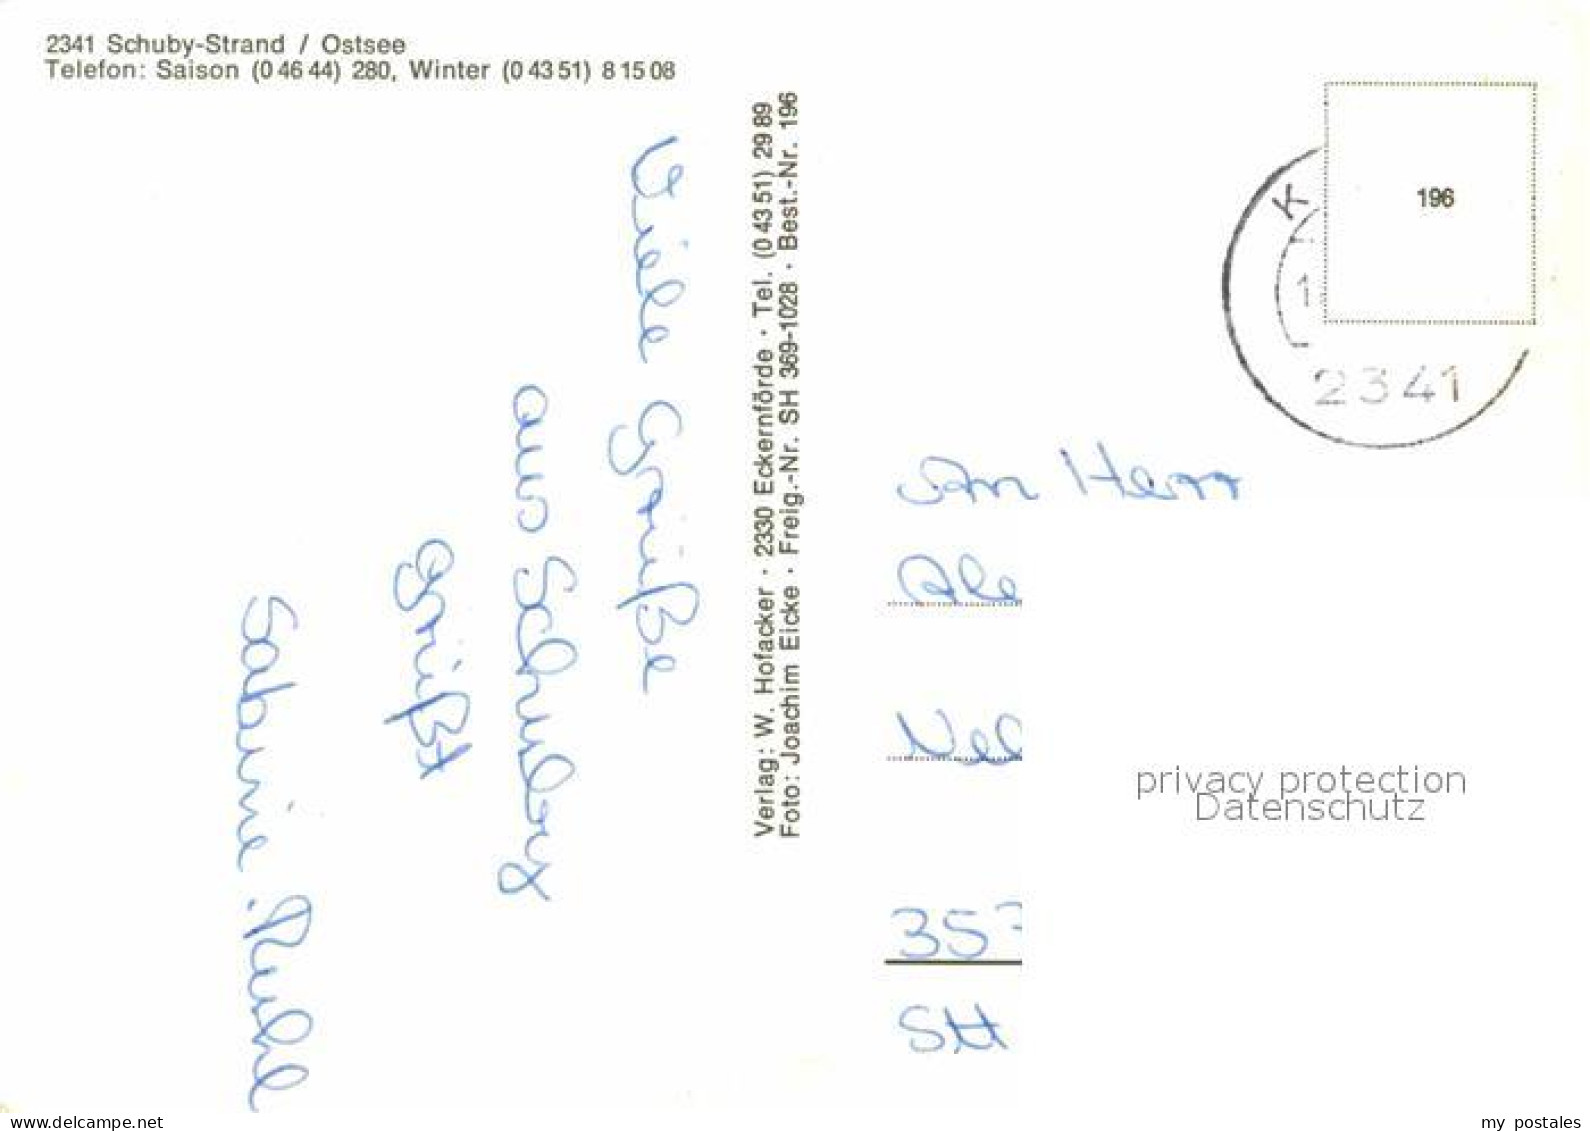 2341 Schuby-Strand / Ostsee
Telefon: Saison (0 46 44) 280, Winter (0 43 51) 8 15 08
Viele Grüße
aus Schuby
grüßt
Sabine Ruhl
Verlag: W. Hofacker · 2330 Eckernförde · Tel. (0 43 51) 29 89
Foto: Joachim Eicke · Freig.-Nr. SH 369-1028 · Best.-Nr. 196
196
K
1
2341
An Herr
Ale
Nel
35
SH
privacy protection
Datenschutz
www.delcampe.net
my_postales